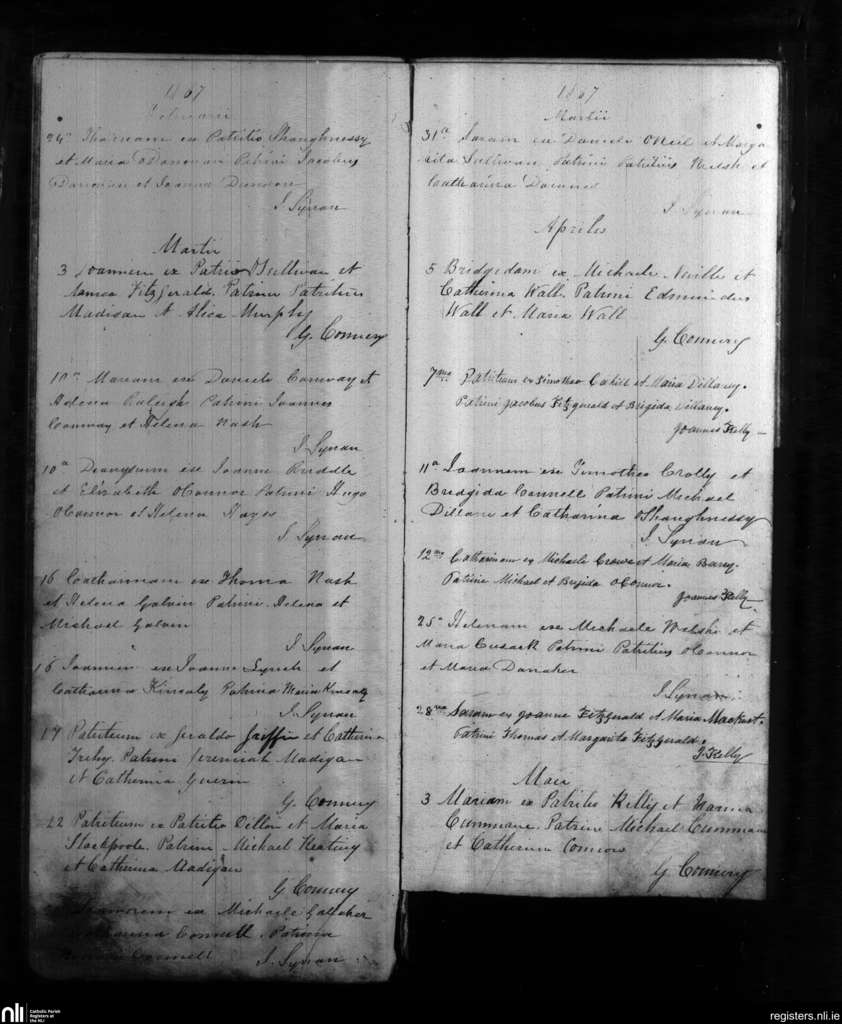 1867
Februarii
24a Thomam ex Patritio Shaughnessy
et Maria O'Donovan Patrini Jacobus
Donovan et Joanna
J. Synan
Martii
3 Joannem ex Patritio O'Sullivan et
Fitzgerald. Patrini Patritius
Madison et Alica Murphy
G. Connery
10a Mariam ex Daniele Conway et
Helena Raleigh Patrini Joannes
Conway et Helena Nash
J. Synan
10a Dionysium ex Joanne Ruddle
et Elizabeth O'Connor Patrini Hugo
O'Connor et Helena Hayes
J. Synan
16 Catharinam ex Thoma Nash
et Helena Galvin Patrini Helena et
Michael Galvin
J. Synan
16 Joannem ex Joanne Lynch et
Catharina Kinsaly Patrina Maria Kinsaly
J. Synan
17 Patritium ex Geraldo Griffin et Catherina
Trehy. Patrini Jeremiah Madigan
et Catherina Guerin
G. Connery
22 Patritium ex Patritio Dillon et Maria
Stackpoole. Patrini Michael Keating
et Catherina Madigan
G Connery
ex Michaele Gallaher
Connell Patrina
Connell J. Synan
1867
Martii
31a Saram ex Daniele O'Neil et Marga
rita Sullivan Patrini Patritius Walsh et
Catharina Downes
J. Synan
Aprilis
5 Bridgedam ex Michaele Neville et
Catherina Wall. Patrini Edmundus
Wall et Maria Wall
G. Connery
7ma Patritium ex Timotheo Cahill et Maria Dillany.
Patrini Jacobus Fitzgerald et Brigida Dillaney.
Joannes Kelly
11a Joannem ex Timotheo Crolly et
Bridgida Connell Patrini Michael
Dillane et Catharina O'Shaughnessy
J. Synan
12ma Catherinam ex Michaele Crowe et Maria Barry.
Patrini Michael et Brigida O'Connor.
Joannes Kelly
25a Helenam ex Michaele Welsh et
Maria Cusack Patrini Patritius O'Connor
et Maria Danaher
J. Synan
28ma Saram ex Joanne Fitzgerald et Maria Mackert.
Patrini Thomas et Margarita Fitzgerald.
J. Kelly
Maii
3 Mariam ex Patritio Kelly et
Cunnneane. Patrini Michael
et Catherina Connors
G. Connery
nli
Catholic Parish
Registers at
the NLI
registers.nli.ie